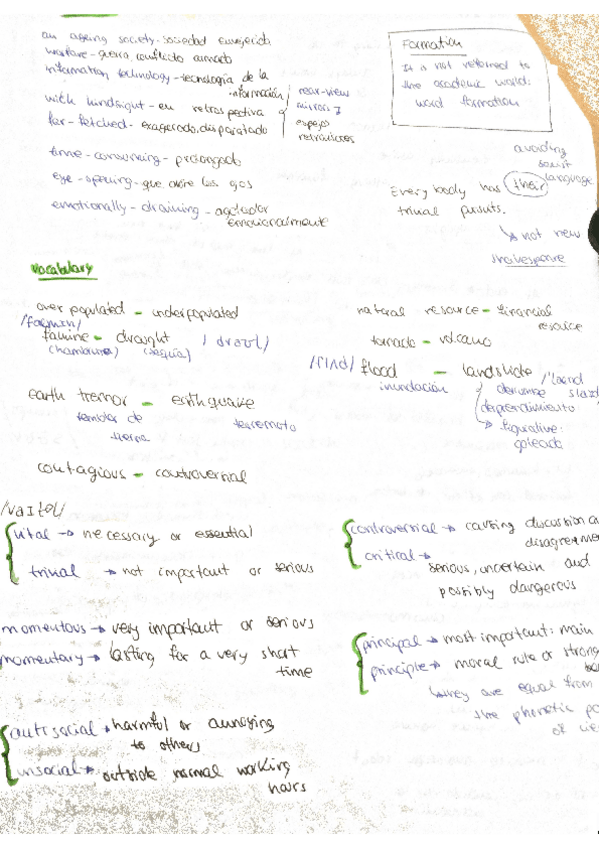 an ageing society - sociedad envejecida
warfare - guerra, conflicto armado
information technology - tecnología de la
información
rear-view
mirors
espejos
retrovisores
with hindsight - en retrospectiva
far-fetched - exagerado, disparatado
time-consuming - prolongado
eye-opening - que abre los ojos
emotionally-draining - agotador
emocionalmente
Formation
It is not referred to
the academic world:
word formation
avoiding
sexist
language
Every body has their
trivial pursuits.
↳ not new
Shakespeare
vocabulary
over populated - underpopulated
/faemin/
famine - draught /draut/
(hambruna) (sequía)
earth tremor - earthquake
temblor de
tierra
terremoto
contagious - controversial
natural resource - financial
resource
tornado - volcano
/flʌd/ flood - landslide /'laend
slaid
inundación
derrumbe
desprendimiento
→ figurative:
goleada
/vaitəl/
vital → necessary or essential
trivial → not important or serious
momentous → very important or serious
momentary → lasting for a very short
time
antisocial → harmful or annoying
to others
unsocial → outside normal working
hours
controversial → causing discussion
critical →
serious, uncertain and
possibly dangerous
principal → most important: main
principle → moral rule or strong
they are equal from
the phonetic
of